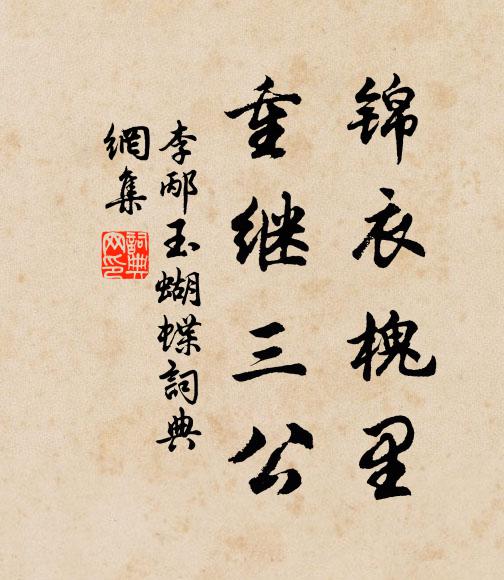 锦衣槐里
重继三公
李邴玉蝴蝶詞典
網集
詞典
网印